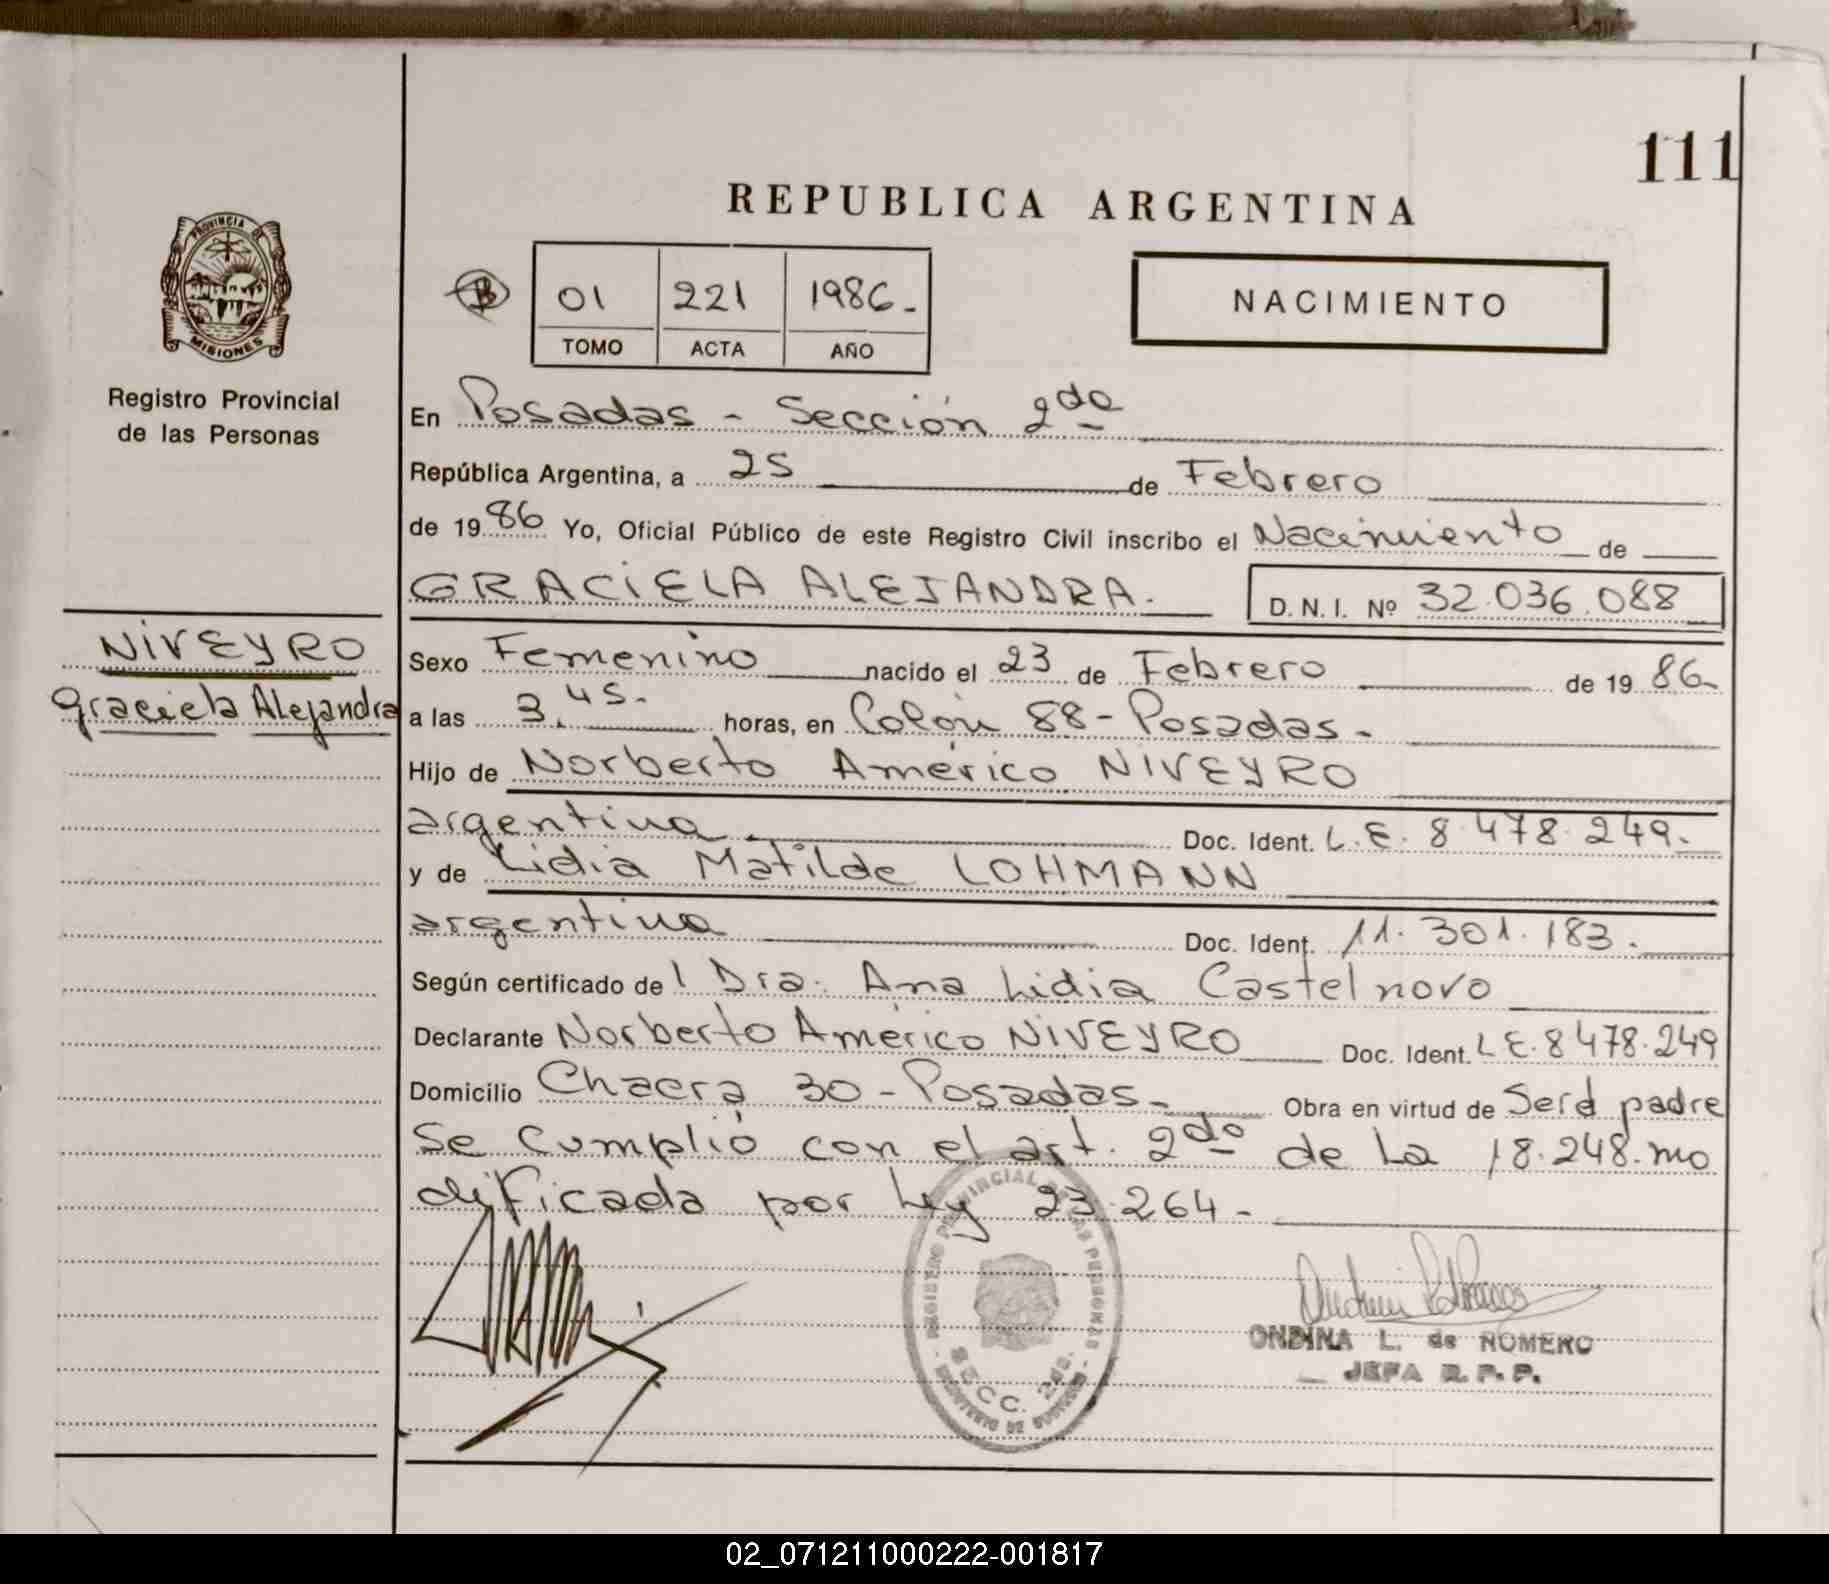 111
REPUBLICA ARGENTINA
PROVINCIA DE
MISIONES
Registro Provincial
de las Personas
B 01 221 1986.-
TOMO ACTA AÑO
NACIMIENTO
En Posadas - Sección 2da
República Argentina, a 25 de Febrero
de 1986 Yo, Oficial Público de este Registro Civil inscribo el Nacimiento de
GRACIELA ALEJANDRA.- D.N.I. Nº 32.036.088
NIVEYRO
Graciela Alejandra
Sexo Femenino nacido el 23 de Febrero de 1986-
a las 3,45.- horas, en Colón 88 - Posadas.-
Hijo de Norberto Américo NIVEYRO
argentina Doc. Ident. L.E. 8.478.249.-
y de Lidia Matilde LOHMANN
argentina Doc. Ident. 11.301.183.-
Según certificado de l Dra. Ana Lidia Castelnovo
Declarante Norberto Américo NIVEYRO Doc. Ident. L.E. 8478.249
Domicilio Chacra 30 - Posadas.- Obra en virtud de Ser el padre
Se cumplió con el art. 2do de La 18.248.mo
dificada por Ley 23.264.-
REGISTRO PROVINCIAL DE LAS PERSONAS
SECC. 2da.
ONDINA L. de ROMERO
JEFA R.P.P.
02_071211000222-001817